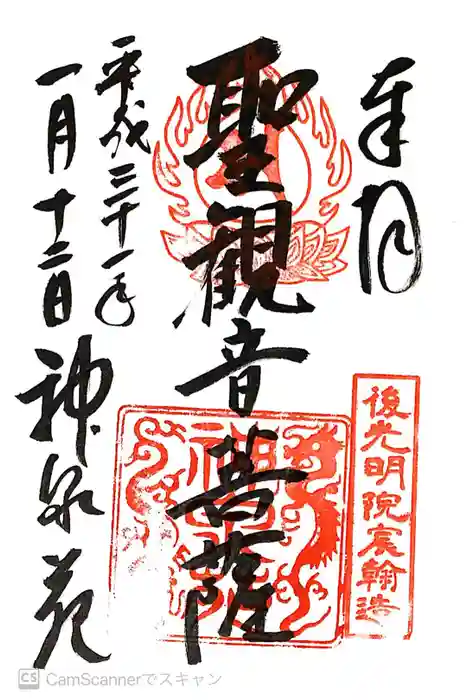 奉拝
聖觀音菩薩
平成三十一年
一月十二日
神泉苑
後光明院宸翰造
CS CamScannerでスキャン